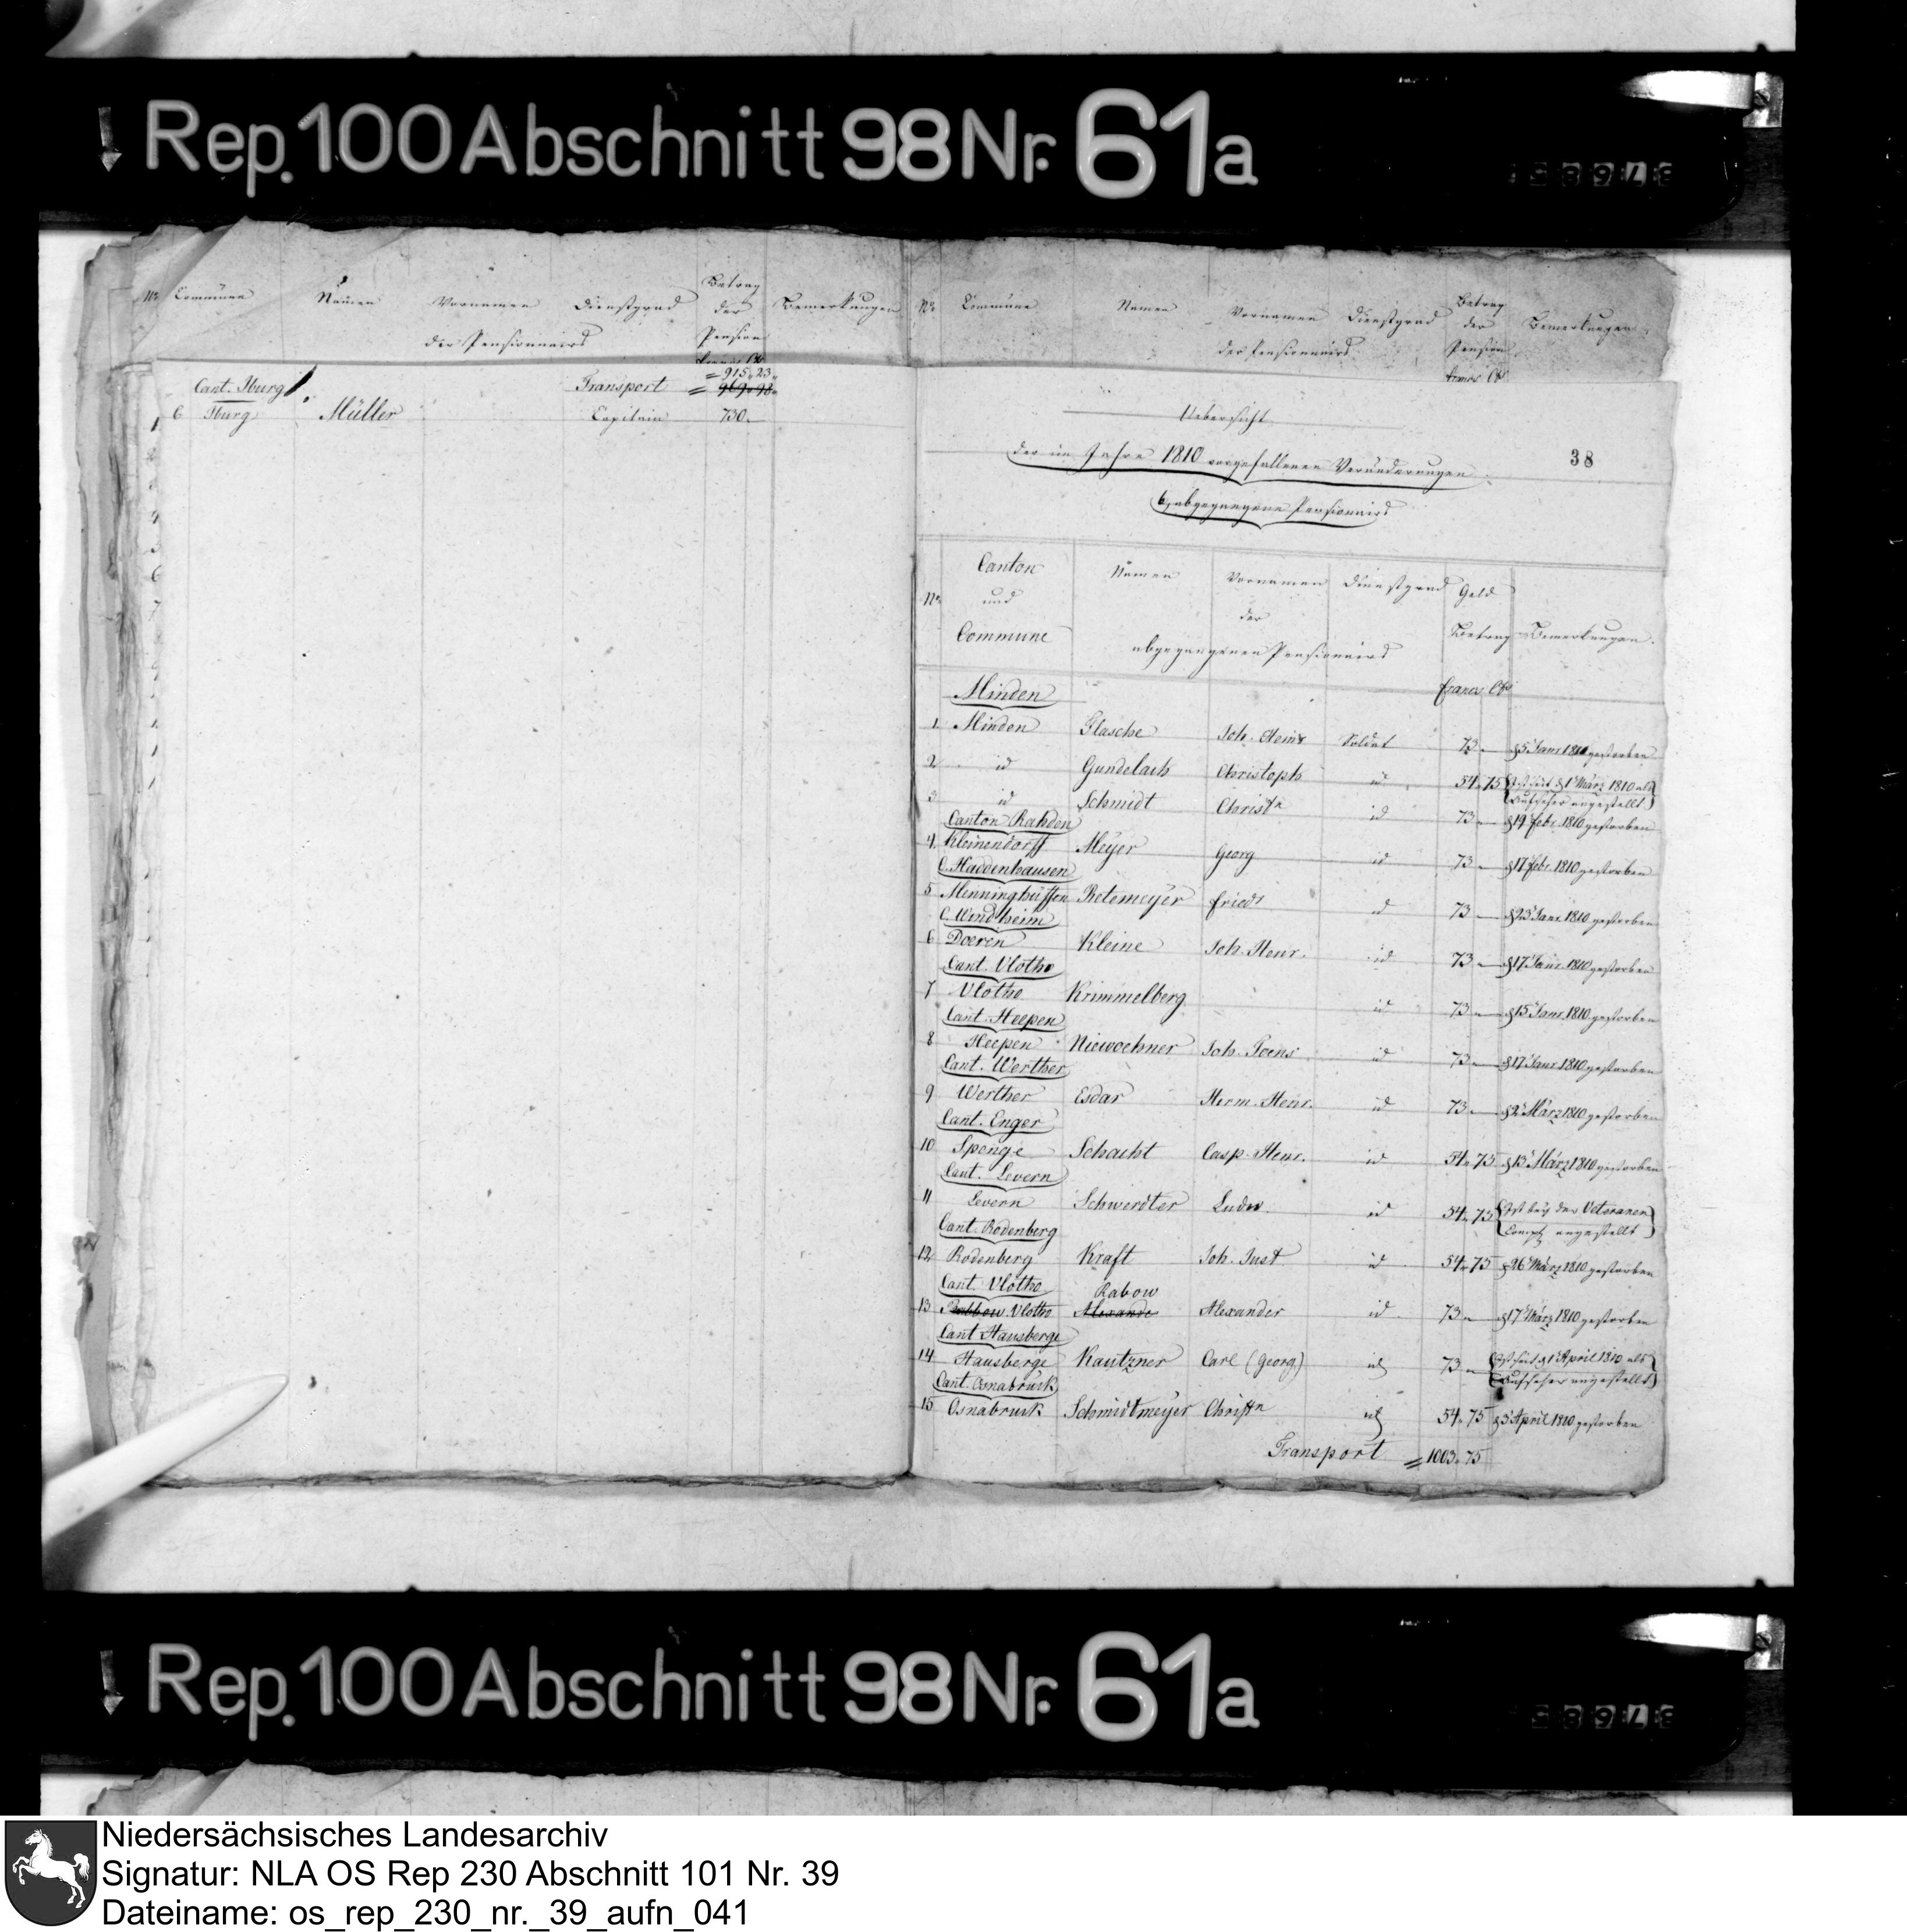 Rep. 100 Abschnitt 98 Nr. 61a
No. Commune Namen Vornamen Dienstgrad Betrag der Pension Bemerkungen
der Pensionnairs
francs Cts
= 915.23.
Cant. Iburg Transport = 969.98.
6 Iburg Müller Capitain 730.—
No. Commune Namen Vornamen Dienstgrad Betrag der Pension Bemerkungen
der Pensionnairs
francs Cts
Uebersicht
der im Jahre 1810 vorgefallenen Veränderungen.
38
b, abgegangene Pensionnairs
No. Canton und Commune Namen Vornamen Dienstgrad Geld Betrag Bemerkungen.
der
abgegangenen Pensionnairs
francs Cts
Minden
1. Minden Glasche Joh. Heinr Soldat 73 — d 5t Janr 1810 gestorben
2 id Gundelach Christoph id 54.75 Ist seit d 1t März 1810 als
Aufseher angestellt
3 id Schmidt Christn id 73 — d 19 febr. 1810 gestorben
Canton Rahden
4. Kleinendorff Meyer Georg id 73 — d 17 febr. 1810 gestorben
C. Haddenhausen
5 Menninghüffen Rotemeyer friedr id 73 — d 23 Janr. 1810 gestorben
C. Windheim
6 Doeren Kleine Joh. Henr. id 73 — d 17 Janr. 1810 gestorben
Cant. Vlotho
7 Vlotho Krimmelberg id 73 — d 15 Janr. 1810 gestorben
Cant. Heepen
8 Heepen Niewoehner Joh. Toens id 73 — d 17 Janr 1810 gestorben
Cant. Werther
9 Werther Esdar Herm. Henr. id 73 — d 2t März 1810 gestorben
Cant. Enger
10 Spenge Schacht Casp. Henr. id 54.75 d 13 März 1810 gestorben
Cant. Levern
11 Levern Schwerdter Ludw. id 54.75 Ist bey der Veteranen
Comp. angestellt
Cant. Rodenberg
12 Rodenberg Kraft Joh. Just id 54.75 d 26 März 1810 gestorben
Cant. Vlotho Rabow
13 Rabbow Vlotho Alexande Alexander id 73 — d 17 März 1810 gestorben
Cant Hausberge
14 Hausberge Kautzner Carl (Georg) id 73 — Ist seit d 1t April 1810 als
Aufseher angestellt
Cant. Osnabrück
15 Osnabruck Schmidtmeyer Christn id 54.75 d 3t April 1810 gestorben
Transport = 1003.75
Rep. 100 Abschnitt 98 Nr. 61a
Niedersächsisches Landesarchiv
Signatur: NLA OS Rep 230 Abschnitt 101 Nr. 39
Dateiname: os_rep_230_nr._39_aufn_041